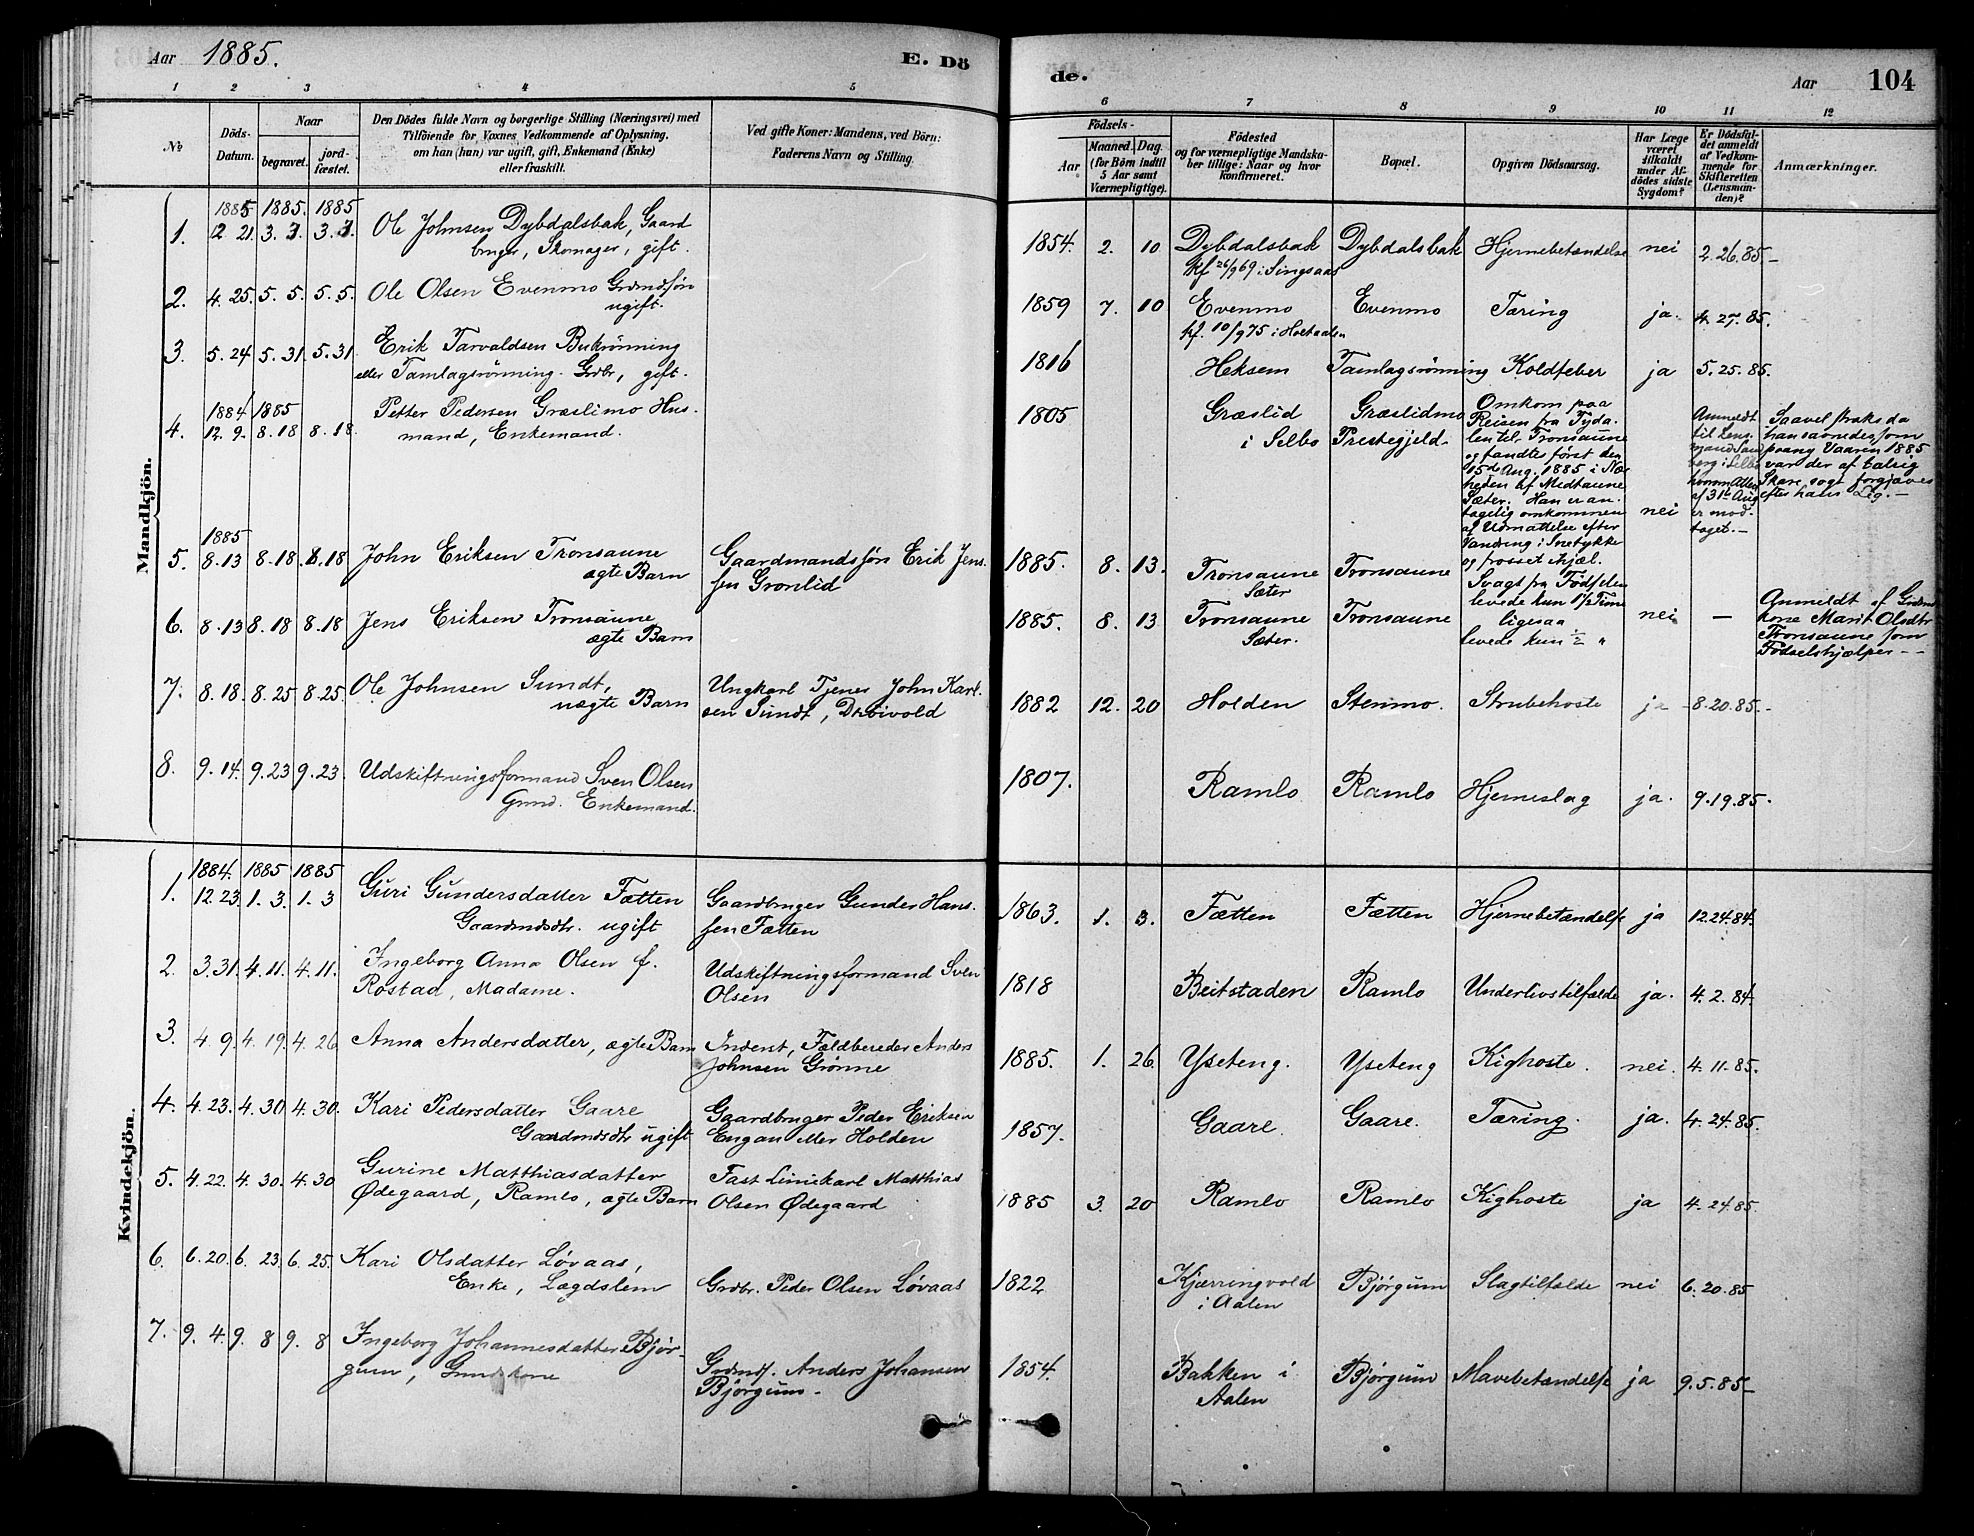 Aar 1885.
E. Dö
1 2 3 4 5
№
Döds-
Datum.
Naar
begravet.
jord-
fæstet.
Den Dödes fulde Navn og borgerlige Stilling (Næringsvei) med
Tilföiende for Voxnes Vedkommende af Oplysning,
om han (hun) var ugift, gift, Enkemand (Enke)
eller fraskilt.
Ved gifte Koner: Mandens, ved Börn:
Faderens Navn og Stilling.
Mandkjön.
1885 1885. 1885
1. 2 21. 3. 7. 3. 7. Ole Johnsen Dybdalsbak, Gaard
bruger, Skomager, gift.
2. 4. 25. 5. 5. 5. 5. Ole Olsen Evenmo Grdmdsøn
ugift.
3. 5. 24 5. 31. 5. 31 Erik Tarvaldsen Bukrønning
eller Tamlagsrönning. Grdbr, gift.
1884 1885
4. 12. 9. 8. 18 8. 18. Petter Pedersen Græslimo Hus-
mand, Enkemand.
1885
5. 8. 13 8. 18 8. 18 John Eriksen Tronsaune
ægte Barn
Gaardmandssøn Erik Jens-
sen Grønlid
6. 8. 13 8. 18 8. 18 Jens Eriksen Tronsaune
ægte Barn
7. 8. 18. 8. 25 8. 25. Ole Johnsen Sundt,
uægte Barn
Ungkarl Tjener John Karl-
sen Sundt, Drøivold
8. 9. 14. 9. 23 9. 23. Udskiftningsformand Sven Olsen
Enkemand.
Kvindekjön.
1884. 1885 1885
1. 12 23. 1. 3. 1. 3 Guri Gundersdatter Fætten
Gaardmdsdtr. ugift
Gaardbruger Gunder Hans-
sen Fætten
2. 3. 31. 4. 11. 4. 11. Ingeborg Anna Olsen f.
Rostad, Madame.
Udskiftningsformand Sven
Olsen
3. 4. 9. 4. 19. 4. 26 Anna Andersdatter, ægte Barn
Inderst, Fældbereder Anders
Johnsen Grønne
4. 4. 23. 4. 30 4. 30. Kari Pedersdatter Gaare
Gaardmdsdtr ugift
Gaardbruger Peder Eriksen
Engan eller Holden
5. 4. 22. 4. 30. 4. 30 Gurine Matthiasdatter
Ødegaard, Ramlo, ægte Barn
Fast Liniekarl Matthias
Olsen Ødegaard
6. 6. 20. 6. 23. 6. 25. Kari Olsdatter Løvaas,
Enke, Lægdslem
Grdbr. Peder Olsen Løvaas
7. 9. 4. 9. 8 9. 8 Ingeborg Johannesdatter Bjør-
gum,
Grdmd. Anders Johansen
Bjørgum.
de.
Aar 104
6 7 8 9 10 11 12
Födsels-
Aar
Maaned. Dag.
(for Börn indtil
5 Aar samt
Værnepligtige).
Födested
og for værnepligtige Mandska-
ber tillige: Naar og hvor
konfirmeret.
Bopæl.
Opgiven Dödsaarsag.
Har Læge
været
tilkaldt
under Af-
dödes sidste
Sygdom?
Er Dödsfal-
det anmeldt
af Vedkom-
mende for
Skifteretten
(Lensman-
den)?
Anmærkninger.
1854. 2. 10 Dybdalsbak Dybdalsbak Hjernebetændelse nei 2. 26. 85.
kf 26/9 69 i Singsaas
1859 7. 10 Evenmo Evenmo Tæring ja. 4. 27. 85.
kf. 10/9 75 i Holtaalen
1816 Heksem Tamlagsrønning Koldfeber ja 5. 25. 85.
1805 Græslid
i Selbo
Græslidmo
Prestegjeld.
Omkom paa
Reisen fra Tyda-
len til Tronsaune
og fandtes först den
15de Aug. 1885 i Nær-
heden af Midtaune
Sæter. Han er an-
tagelig omkommen
af Udmattelse efter
Vandring i Snetykke
og frosset ihjæl.
nei
Anmeldt
til Lens-
mand Sand
berg i Selbo
hvorom Attest
af 31te Aug
er mod-
taget.
Saavel straks da
han savnedes som
paany Vaaren 1885
var der af talrig
Skare søgt forgjæves
efter hans Lig.
1885. 8. 13. Tronsaune
Sæter
Tronsaune Svagt fra Födslen
levede kun 1½ Time
1885. 8. 13 Tronsaune
Sæter.
Tronsaune ligesaa
levede kun ½ "
nei —
Anmeldt af Grdmd
kone Marit Olsdtr
Tronsaune som
Födselshjælper
1882 12. 20 Holden Stenmo. Strubehoste ja 8. 20. 85.
1807. Ramlo Ramlo Hjerneslag ja. 9. 19. 85.
1863. 1. 3. Fætten Fætten Hjernebetændelse ja 12. 24. 84.
1818 Beitstaden Ramlo Underlivstilfælde ja. 4. 2. 84.
1885. 1. 26. Yseteng. Yseteng Kighoste. nei. 4. 11. 85.
1857. Gaare. Gaare. Tæring. ja. 4. 24. 85.
1885 3. 20 Ramlo Ramlo Kighoste ja 4. 24. 85.
1822 Kjærringvold
i Aalen
Bjørgum Slagtilfælde nei 6. 20. 85
1854. Bakken i
Aalen
Bjørgum Mavebetændelse ja 9. 5. 85